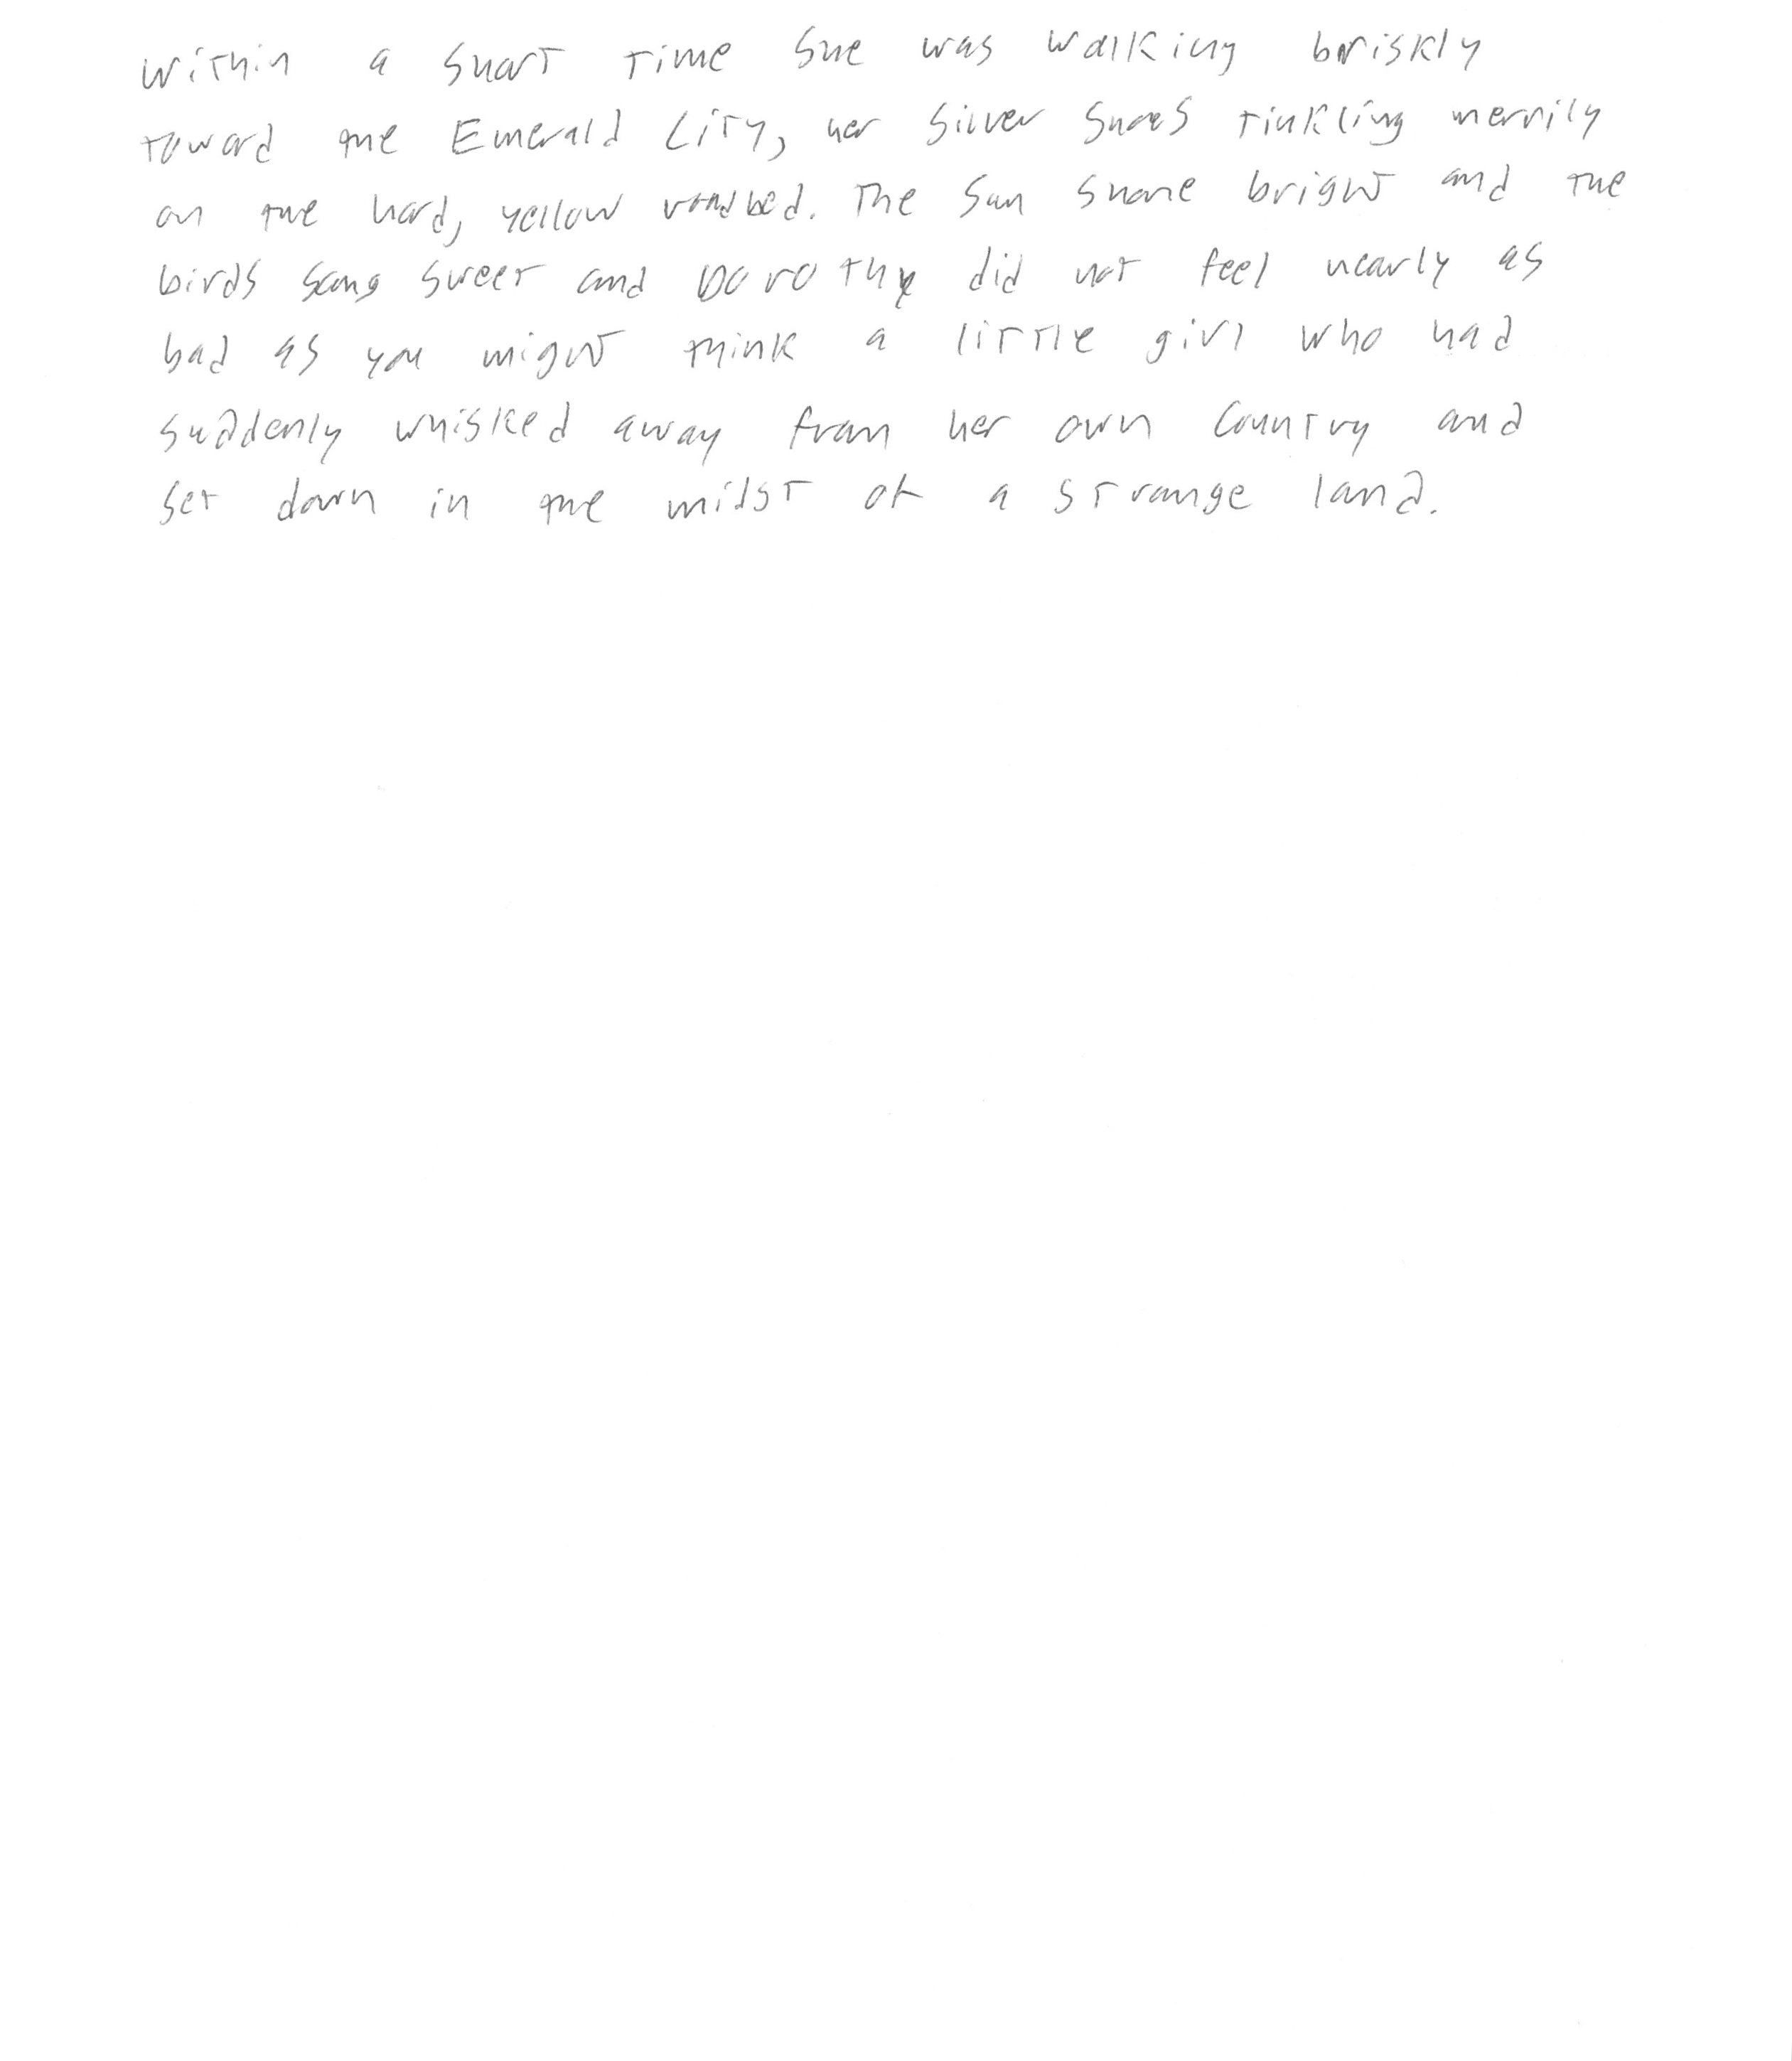 Within a short time she was walking briskly
toward the Emerald City, her Silver Shoes tinkling merrily
on the hard, yellow roadbed. The sun shone bright and the
birds sang sweet and Dorothy did not feel nearly as
bad as you might think a little girl who had
suddenly whisked away from her own country and
set down in the midst of a strange land.